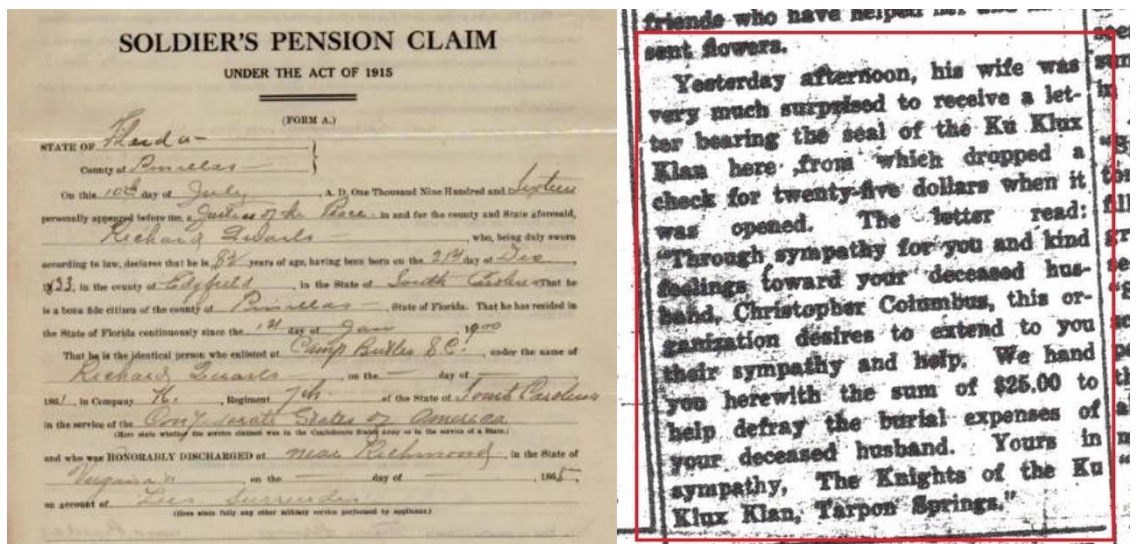 SOLDIER'S PENSION CLAIM
UNDER THE ACT OF 1915
(FORM A.)
STATE OF Florida
County of Pinellas
On this 10th day of July, A. D. One Thousand Nine Hundred and Sixteen
personally appeared before me, a Justice of the Peace in and for the county and State aforesaid,
Richard Quarls, who, being duly sworn
according to law, declares that he is 82 years of age, having been born on the 21st day of Dec,
1833, in the county of Edgfield, in the State of South Carolina That he
is a bona fide citizen of the county of Pinellas, State of Florida. That he has resided in
the State of Florida continuously since the 1st day of Jan, 1900
That he is the identical person who enlisted at Camp Butler S.C., under the name of
Richard Quarls, on the — day of —
1861, in Company K., Regiment 7th of the State of South Carolina
in the service of the Confederate States of America
(Here state whether the service claimed was in the Confederate States Army or in the service of a State.)
and who was HONORABLY DISCHARGED at near Richmond, in the State of
Virginia, on the — day of, 1865,
on account of Lees Surrender
(Here state fully any other military service performed by applicant.)
friends who have helped her and
sent flowers.
Yesterday afternoon, his wife was
very much surprised to receive a let-
ter bearing the seal of the Ku Klux
Klan here ,from which dropped a
check for twenty-five dollars when it
was opened. The letter read:
"Through sympathy for you and kind
feelings toward your deceased hus-
band, Christopher Columbus, this or-
ganization desires to extend to you
their sympathy and help. We hand
you herewith the sum of $25.00 to
help defray the burial expenses of
your deceased husband. Yours in
sympathy, The Knights of the Ku
Klux Klan, Tarpon Springs."